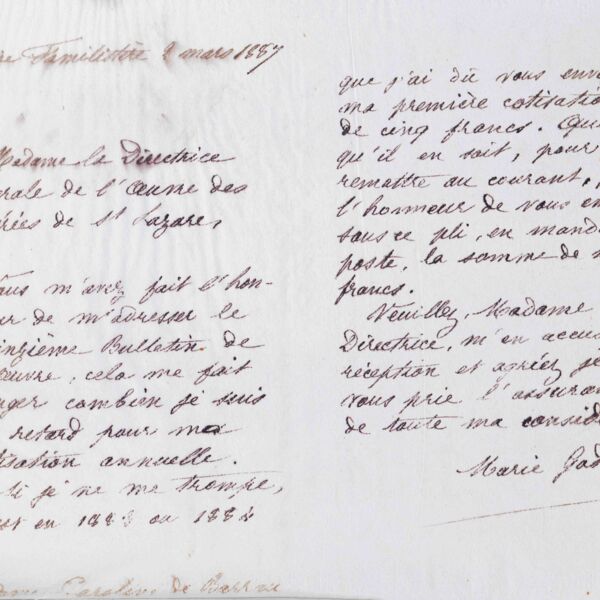 re Familistère 2 mars 1887
Madame la Directrice
rale de l'Œuvre des
rées de St Lazare,
Vous m'avez fait l'hon-
ur de m'adresser le
inzième Bulletin de
Œuvre, cela me fait
nger combien je suis
retard pour ma
tisation annuelle.
si je ne me trompe,
est en 1883 ou 1884
dame Caroline de Barrau
que j'ai dû vous env
ma première cotisatio
de cinq francs. Quo
qu'il en soit, pour
remettre au courant,
l'honneur de vous en
sous ce pli, en mand
poste, la somme de
francs.
Veuillez, Madame
Directrice, m'en accus
réception et agréez je
vous prie l'assuran
de toute ma considé
Marie God